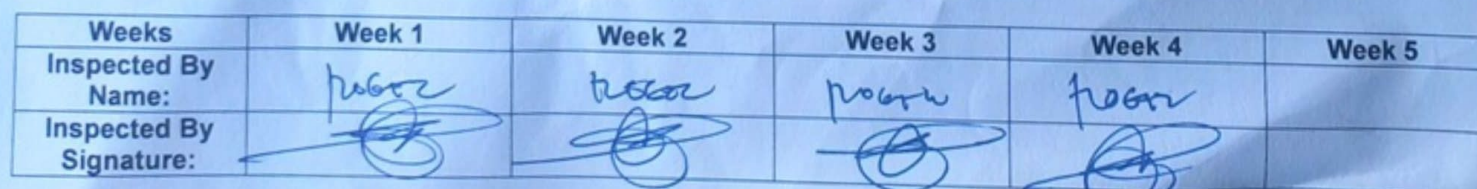 Weeks Week 1 Week 2 Week 3 Week 4 Week 5
Inspected By
Name: ROGER ROGER ROGER ROGER
Inspected By
Signature: